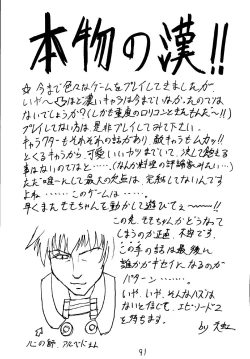 本物の漢!!
☆今まで色々なゲームをプレイしてきましたが、
いや〜こうほど濃いキャラは今までいなかったのでは
ないでしょうか?(しかも重度のロリコンときたもんだ〜!!)
プレイしてない方は、是非プレイしてみて下さい。
キャラクターもそれぞれの話があり、敵キャラもんカッ!!
とくるキャラから、可愛いいヤツまでいて、決して飽きる
事はないのですねと…(なんか料理の評論家みたい…)
ただ唯一にして最大の欠点は、完結してないんです
よね……このゲームは……。
早くまた、モモちゃんを動かして遊びてぇ〜〜!!
この先、モモちゃんがどうなって
しまうのか正直不安です。
この手の話は最後に
誰かがギセイになるのが
パターン……。
いや、いや、そんなハズは
ないと信じて、エピソード2
を待ちます。
by 大虹
心の師、アルベドさん
91